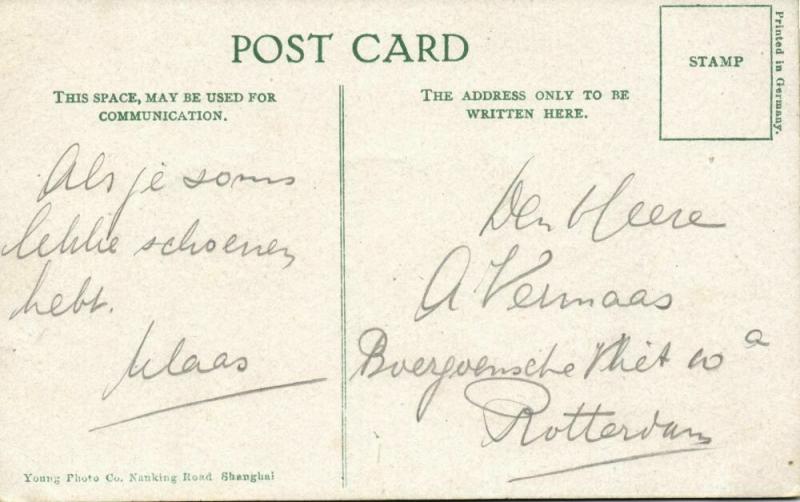 POST CARD
STAMP
Printed in Germany.
THIS SPACE, MAY BE USED FOR
COMMUNICATION.
THE ADDRESS ONLY TO BE
WRITTEN HERE.
Als je soms
lekke schoenen
hebt.
Klaas
Den Heere
A Vermaas
Boergoensche Vliet 10 a
Rotterdam
Young Photo Co. Nanking Road Shanghai